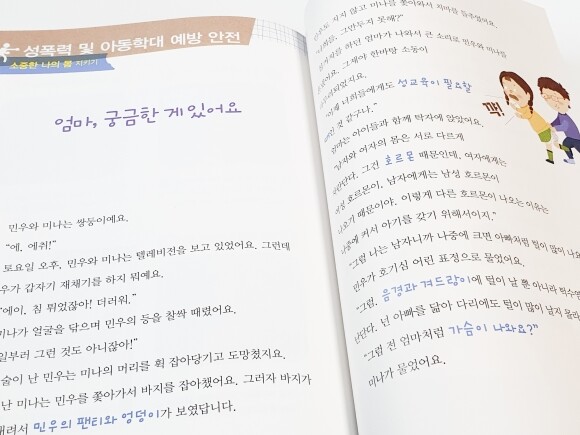 성폭력 및 아동학대 예방 안전
소중한 나의 몸 지키기
엄마, 궁금한 게 있어요
민우와 미나는 쌍둥이예요.
“에, 에취!”
토요일 오후, 민우와 미나는 텔레비전을 보고 있었어요. 그런데
우가 갑자기 재채기를 하지 뭐예요.
“에이. 침 튀었잖아! 더러워.”
미나가 얼굴을 닦으며 민우의 등을 찰싹 때렸어요.
일부러 그런 것도 아니잖아!”
술이 난 민우는 미나의 머리를 휙 잡아당기고 도망쳤지요.
난 미나는 민우를 쫓아가서 바지를 잡아챘어요. 그러자 바지가
내려서 민우의 팬티와 엉덩이가 보였답니다.
지지 않고 미나를 쫓아와서 치마를 들추었어요.
그만두지 못해?”
하던 엄마가 나와서 큰 소리로 민우와 미나를
그제야 한바탕 소동이
너희들에게도 성교육이 필요할
것 같구나.”
엄마는 아이들과 함께 탁자에 앉았어요.
“남자와 여자의 몸은 서로 다르게
단다. 그건 호르몬 때문인데, 여자에게는
여성 호르몬이, 남자에게는 남성 호르몬이
나오기 때문이야. 이렇게 다른 호르몬이 나오는 이유는
나중에 커서 아기를 갖기 위해서이지.”
“그럼 나는 남자니까 나중에 크면 아빠처럼 털이 많이 나요
민우가 호기심 어린 표정으로 물었어요.
“그럼, 음경과 겨드랑이에 털이 날 뿐 아니라 턱수염
난단다. 넌 아빠를 닮아 다리에도 털이 많이 날지 몰라
“그럼 전 엄마처럼 가슴이 나와요?”
미나가 물었어요.
꺅!